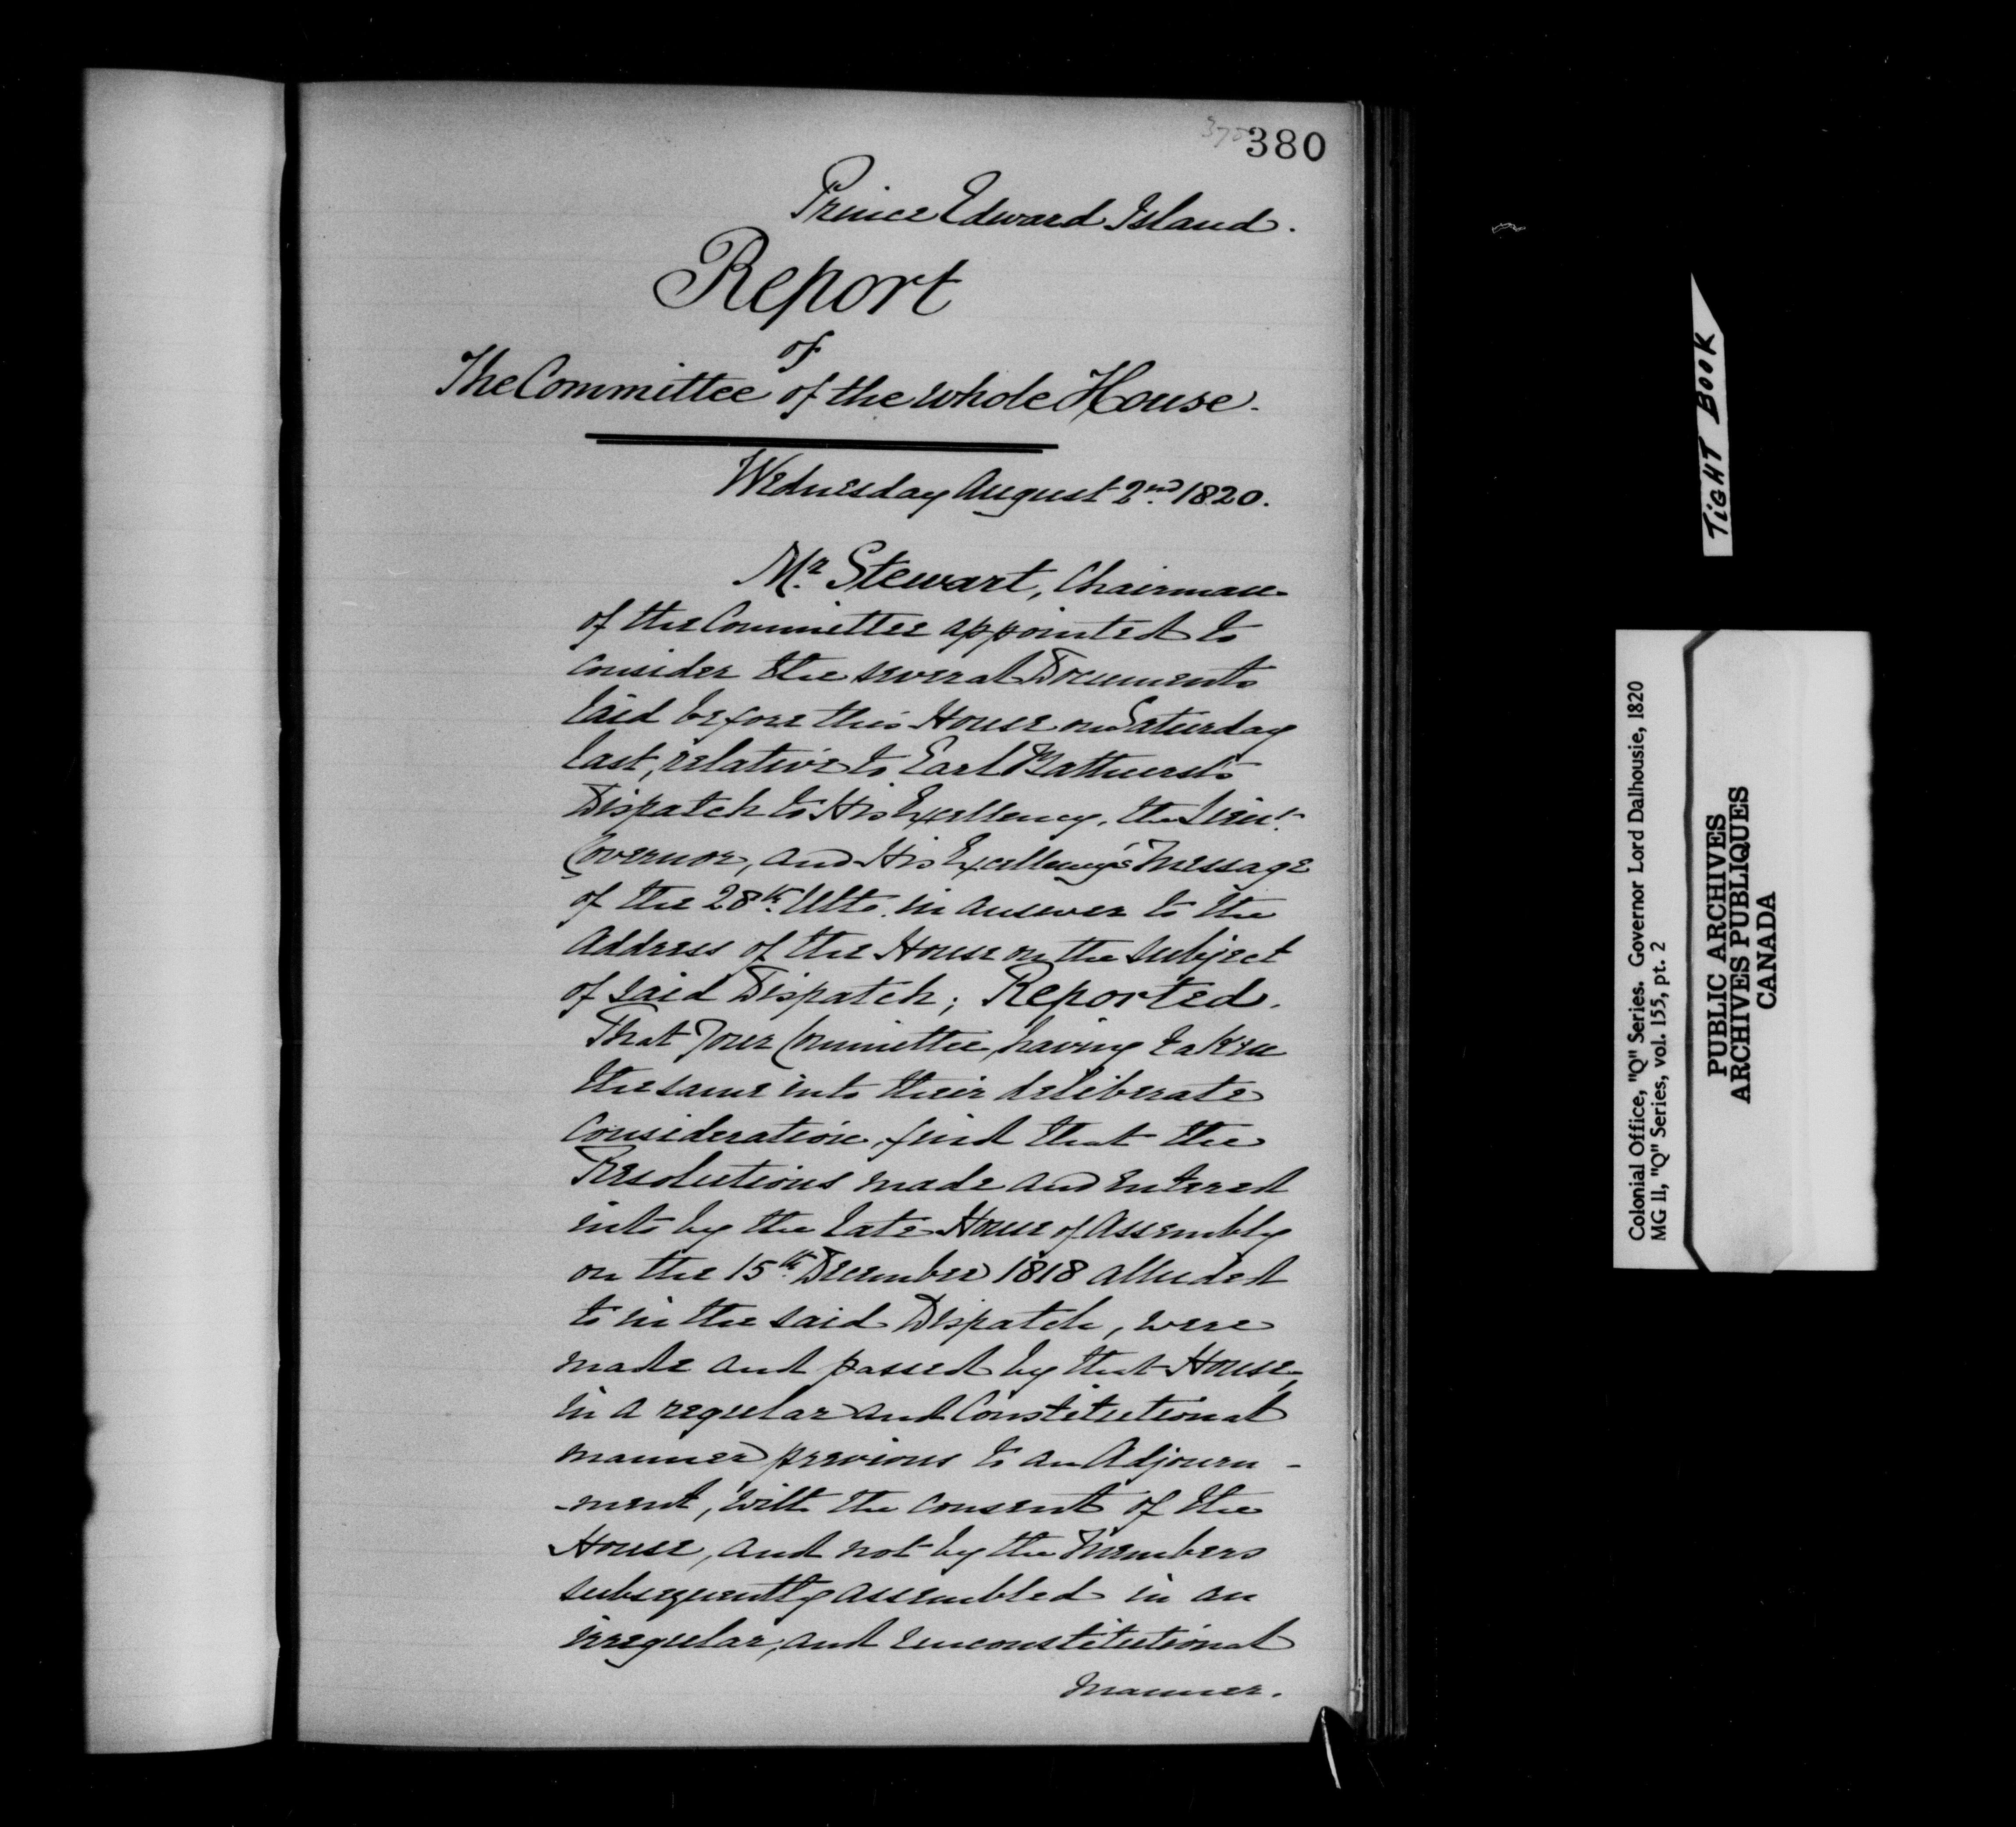 380
Prince Edward Island.
Report
of
The Committee of the whole House.
Wednesday August 2nd 1820.
Mr Stewart, Chairman
of the Committee appointed to
consider the several Documents
laid before this House on Saturday
last, relative to Earl Bathurst's
Dispatch to His Excellency, the Lieut.
Governor, and His Excellency's Message
of the 28th Ulto. in answer to the
Address of the House on the subject
of said Dispatch; Reported.
That Your Committee having taken
the same into their deliberate
consideration, find that the
Resolutions made and entered
into by the late House of Assembly
on the 15th December 1818 alluded
to in the said Dispatch, were
made and passed by that House,
in a regular and Constitutional
manner previous to an Adjourn-
-ment, with the consent of the
House, and not by the Members
subsequently assembled in an
irregular, and unconstitutional
manner.
TIGHT BOOK
Colonial Office, "Q" Series. Governor Lord Dalhousie, 1820
MG 11, "Q" Series, vol. 155, pt. 2
PUBLIC ARCHIVES
ARCHIVES PUBLIQUES
CANADA